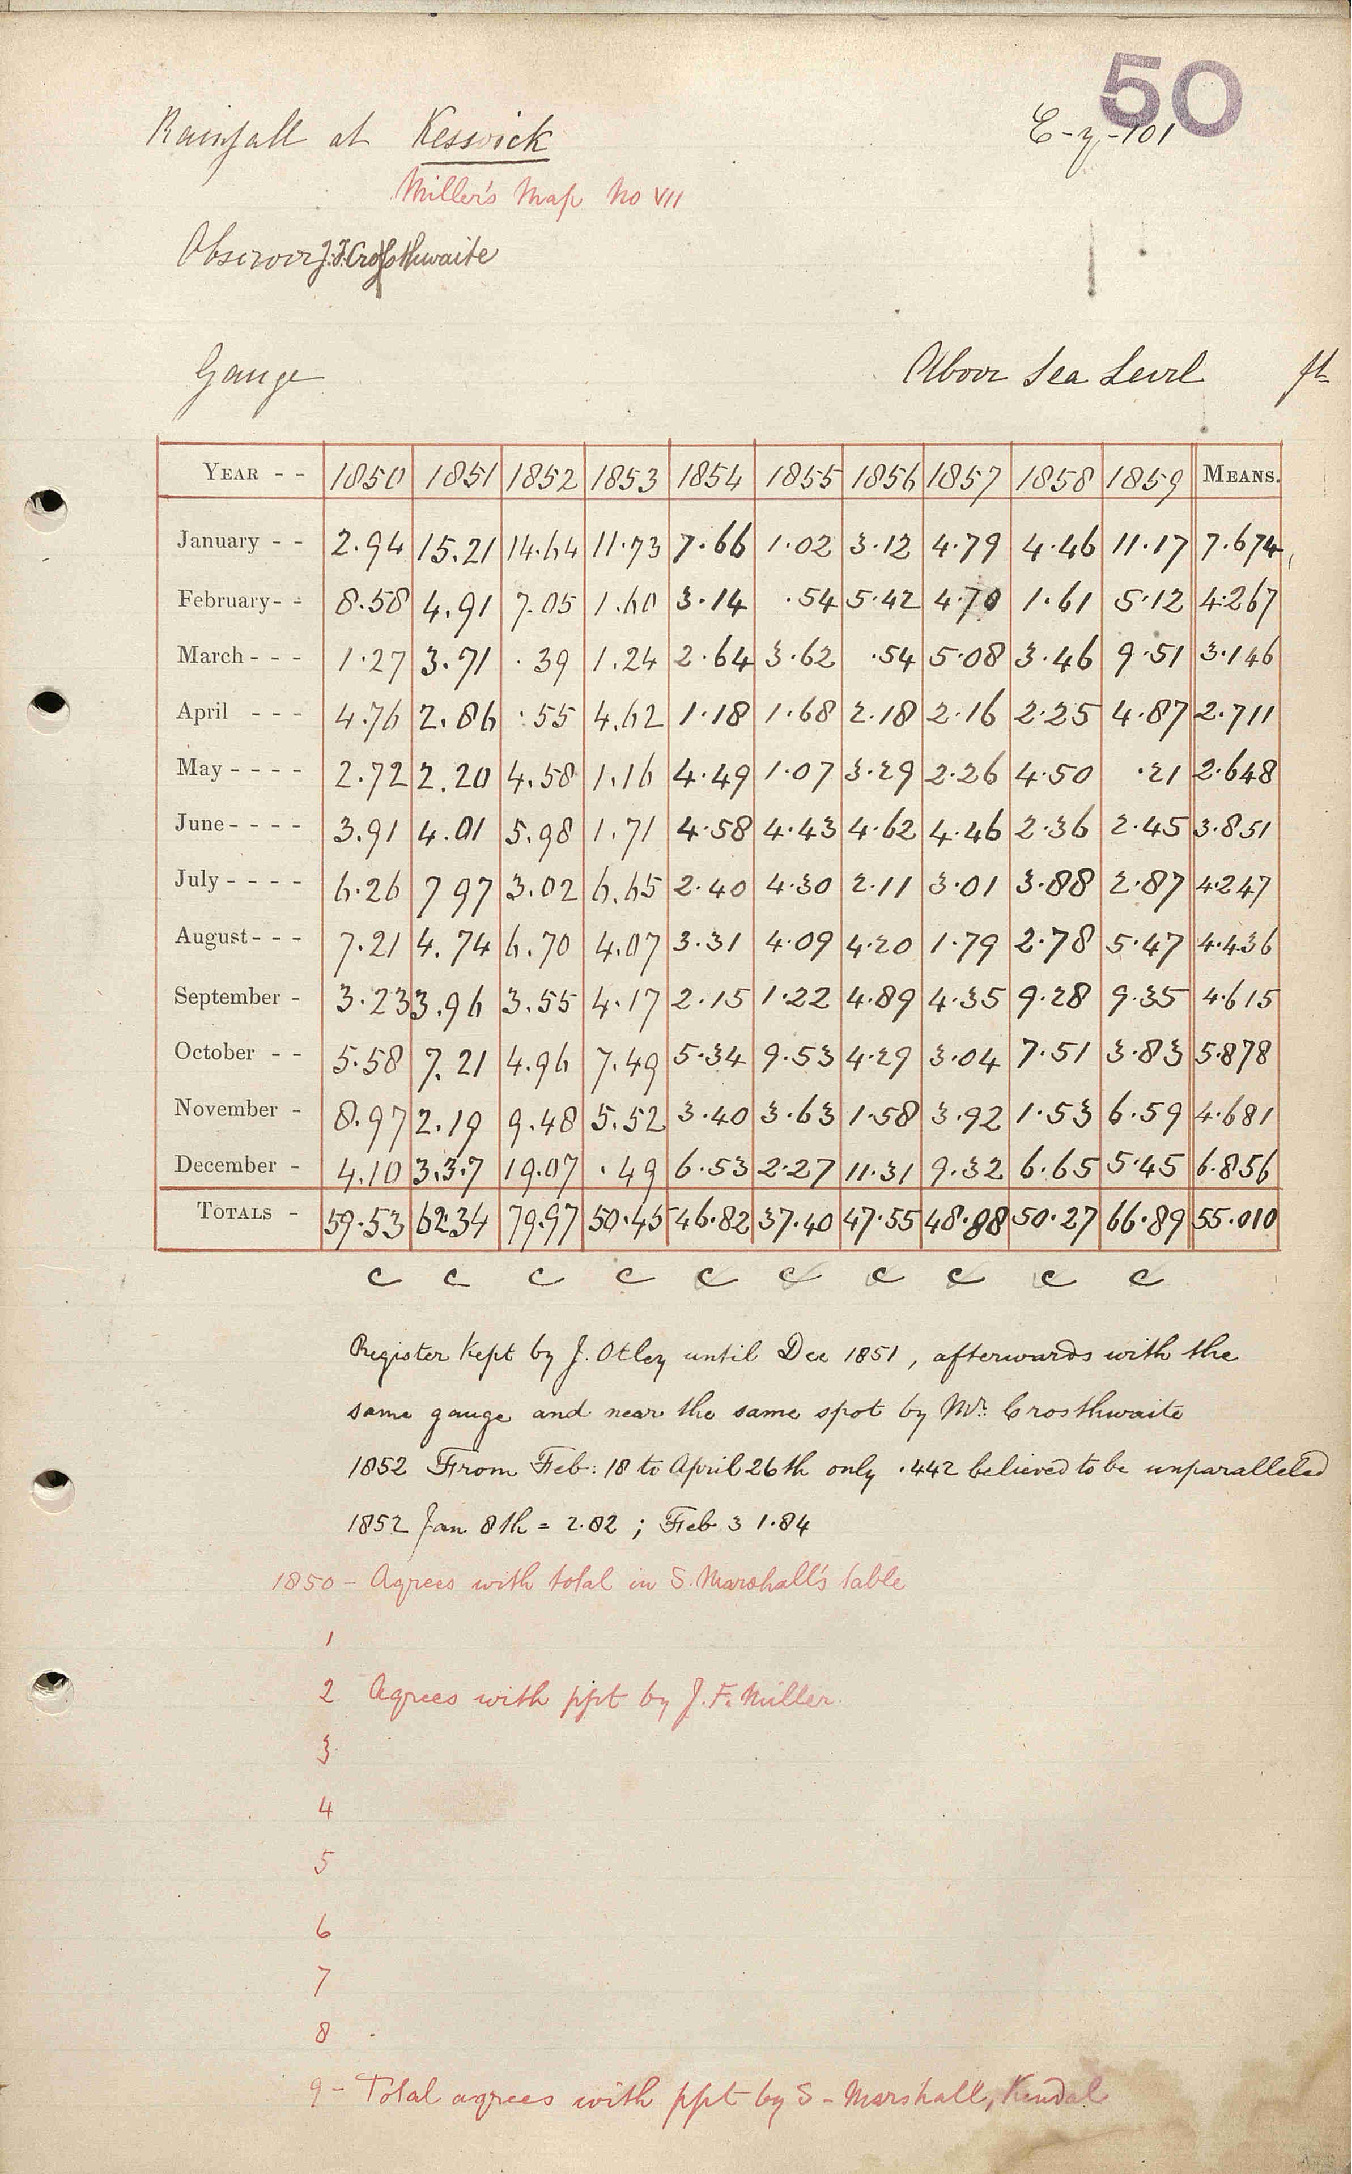 50
Rainfall at Keswick
Miller's Map No VII
Observer J.F. Crosthwaite
Gauge Above Sea Level ft.
YEAR - - 1850 1851 1852 1853 1854 1855 1856 1857 1858 1859 MEANS.
January - - 2.94 15.21 14.64 11.73 7.66 1.02 3.12 4.79 4.46 11.17 7.674
February - - 8.58 4.91 7.05 1.60 3.14 .54 5.42 4.70 1.61 5.12 4.267
March - - - 1.27 3.71 .39 1.24 2.64 3.62 .54 5.08 3.46 9.51 3.146
April - - - 4.76 2.86 .55 4.62 1.18 1.68 2.18 2.16 2.25 4.87 2.711
May - - - - 2.72 2.20 4.58 1.16 4.49 1.07 3.29 2.26 4.50 .21 2.648
June - - - - 3.91 4.01 5.98 1.71 4.58 4.43 4.62 4.46 2.36 2.45 3.851
July - - - - 6.26 7 97 3.02 6.65 2.40 4.30 2.11 3.01 3.88 2.87 4.247
August - - - 7.21 4.74 6.70 4.07 3.31 4.09 4.20 1.79 2.78 5.47 4.436
September - 3.23 3.96 3.55 4.17 2.15 1.22 4.89 4.35 9.28 9.35 4.615
October - - 5.58 7.21 4.96 7.49 5.34 9.53 4.29 3.04 7.51 3.83 5.878
November - 8.97 2.19 9.48 5.52 3.40 3.63 1.58 3.92 1.53 6.59 4.681
December - 4.10 3.37 19.07 .49 6.53 2.27 11.31 9.32 6.65 5.45 6.856
TOTALS - 59.53 62.34 79.97 50.45 46.82 37.40 47.55 48.88 50.27 66.89 55.010
c c c c c c c c c c
Register kept by J. Otley until Dec 1851, afterwards with the
same gauge and near the same spot by Mr. Crosthwaite
1852 From Feb: 18 to April 26th only .442 believed to be unparalleled
1852 Jan 8th = 2.82 ; Feb 3 1.84
1850 - Agrees with total in S. Marshall's table
1
2 Agrees with ppt by J. F. Miller.
3
4
5
6
7
8
9 - Total agrees with ppt by S - Marshall, Kendal